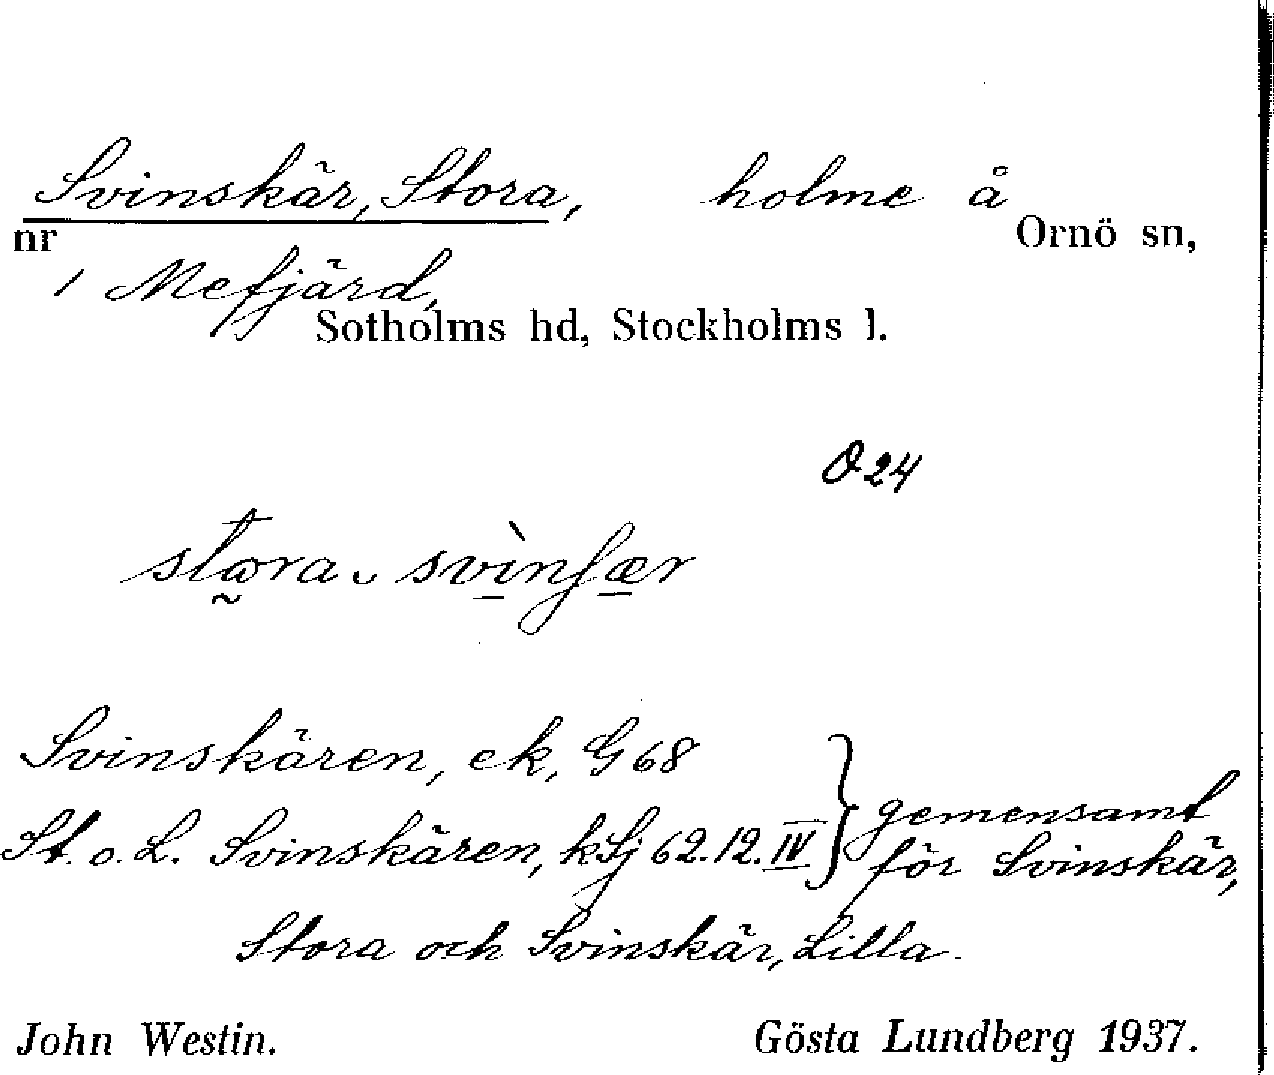 Svinskär, Stora, holme å
nr Ornö sn,
1 Mefjärd,
Sotholms hd, Stockholms l.
O 24
svinʃær
Svinskären, ek, G 68
St. o. L. Svinskären, kSj 62.12.IV } gemensamt
för Svinskär,
Stora och Svinskär, Lilla.
John Westin. Gösta Lundberg 1937.